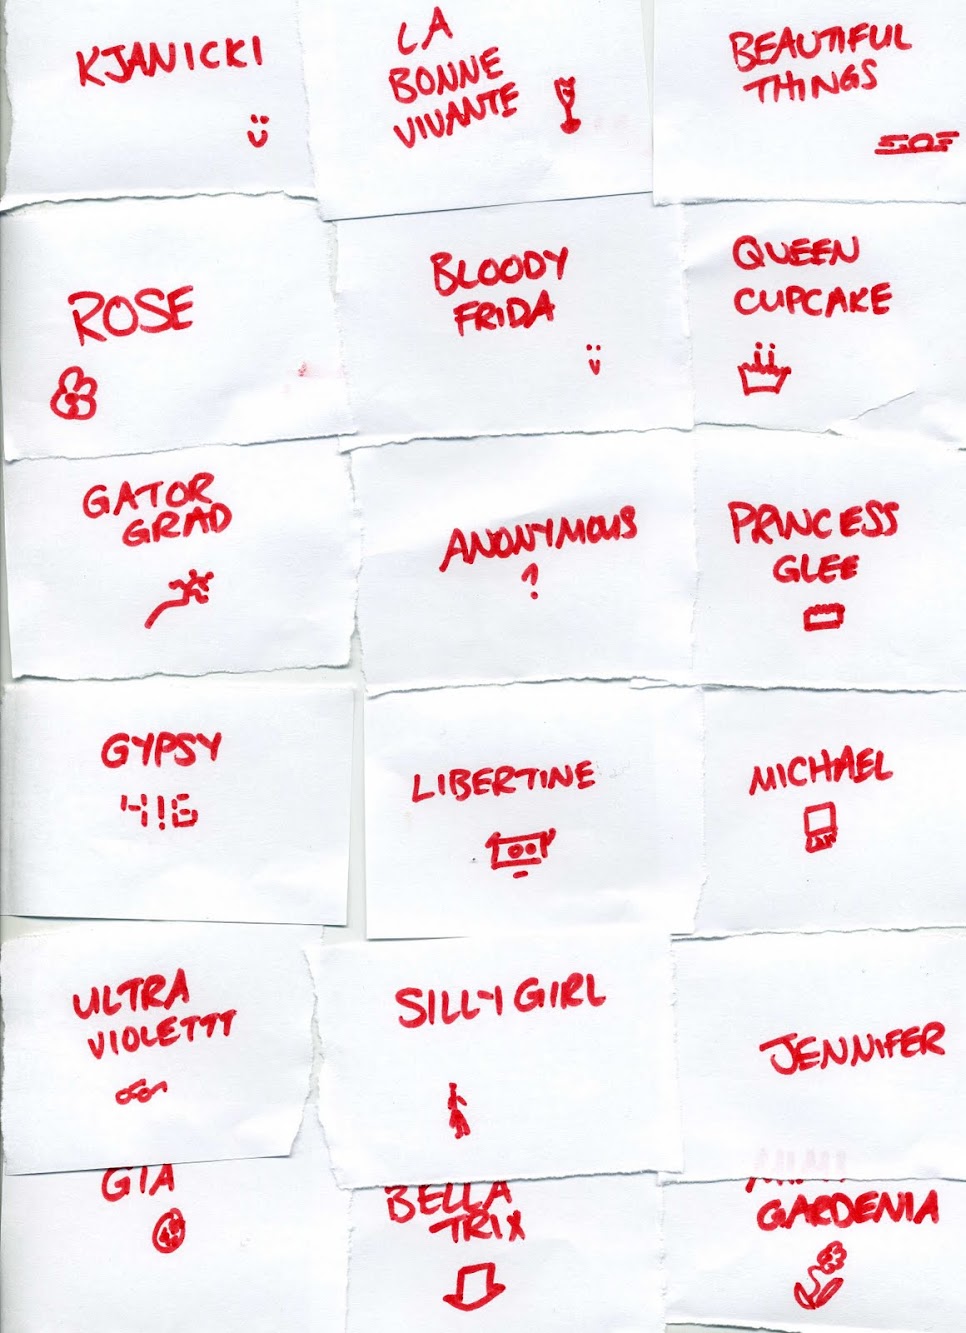 KJANICKI
LA
BONNE
VIVANTE
BEAUTIFUL
THINGS
ROSE
BLOODY
FRIDA
QUEEN
CUPCAKE
GATOR
GRAD
ANONYMOUS
?
PRINCESS
GLEE
GYPSY
416
LIBERTINE
MICHAEL
ULTRA
VIOLETTT
SILLY GIRL
JENNIFER
GIA
BELLA
TRIX
GARDENIA